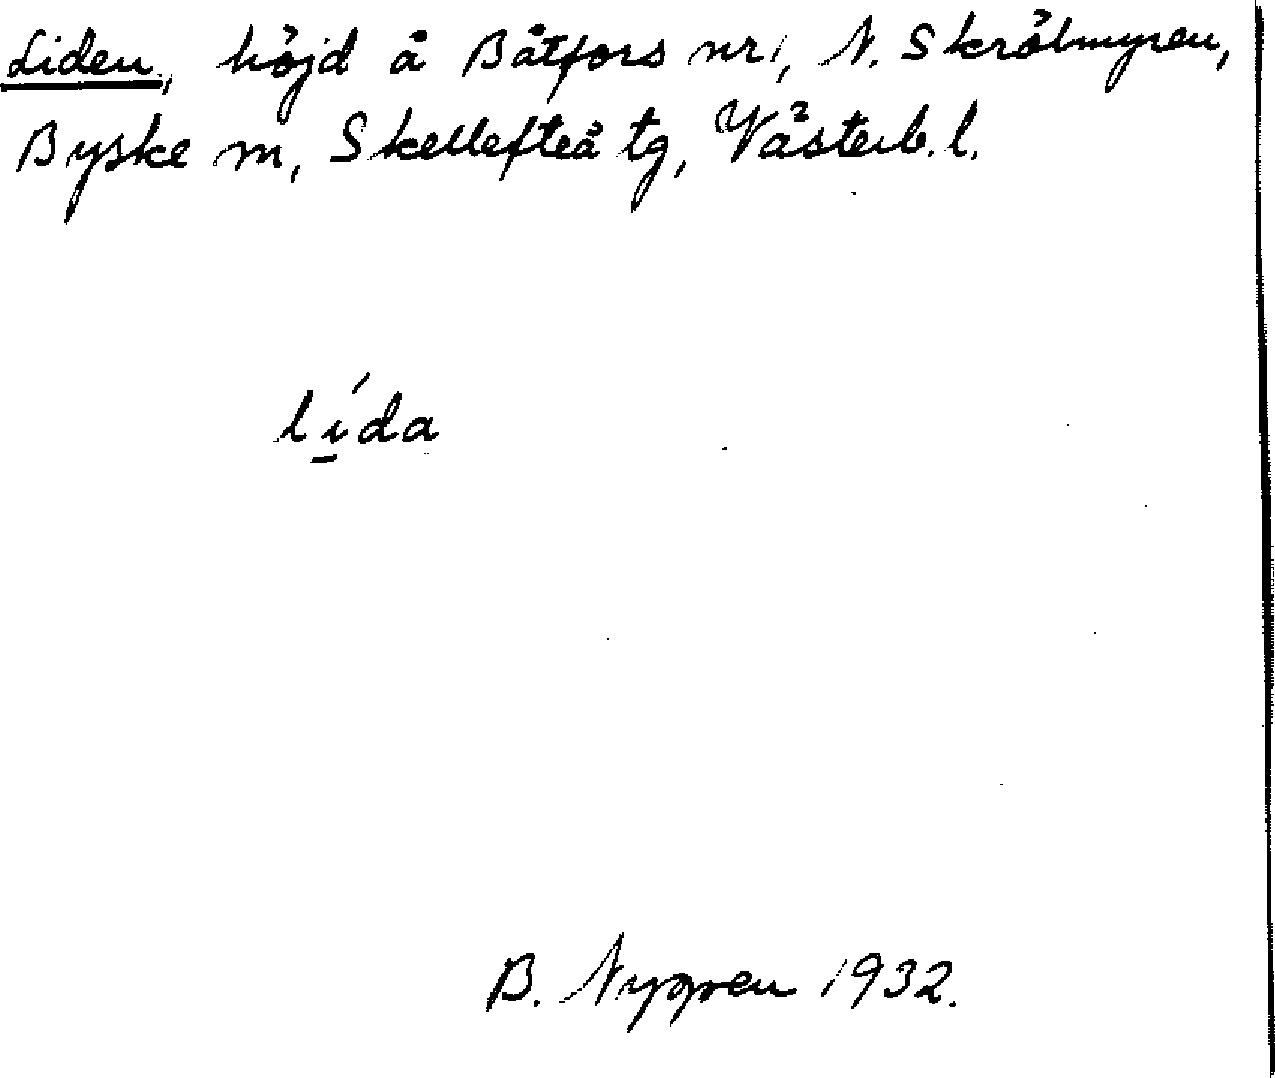 Liden, höjd å Båtfors nr 1, N. Skrålmyren,
Byske m, Skellefteå tg, Västerb. l.
lı̱́da
B. Nygren 1932.